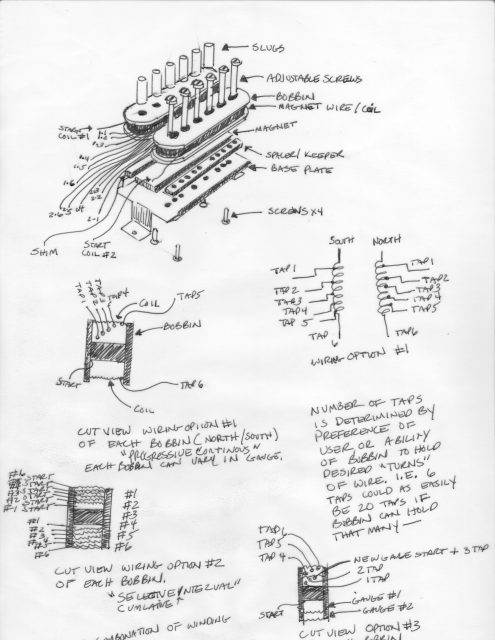 SLUGS
ADJUSTABLE SCREWS
BOBBIN
MAGNET WIRE/COIL
MAGNET
SPACER/KEEPER
BASE PLATE
SCREWS X4
START
COIL #1
1-1
1-2
1-3
1-4
1-5
1-6
2-3
2-2
2-1
2-6
2-5
SHIM
START
COIL #2
SOUTH
NORTH
TAP 1
TAP 2
TAP 3
TAP 4
TAP 5
TAP 6
TAP 1
TAP 2
TAP 3
TAP 4
TAP 5
TAP 6
WIRING OPTION #1
TAP 1
TAP 2
TAP 3
TAP 4
COIL
TAP 5
BOBBIN
START
TAP 6
COIL
CUT VIEW WIRING OPTION #1
OF EACH BOBBIN (NORTH/SOUTH)
"PROGRESSIVE CONTINOUS"
EACH BOBBIN CAN VARY IN GAUGE.
NUMBER OF TAPS
IS DETERMINED BY
PREFERENCE OF
USER OR ABILITY
OF BOBBIN TO HOLD
DESIRED "TURNS"
OF WIRE. I.E. 6
TAPS COULD AS EASILY
BE 20 TAPS IF
BOBBIN CAN HOLD
THAT MANY —
#6 START
#5 START
#4 START
#3 START
#2 START
#1 START
#1
#2
#3
#4
#5
#6
#1
#2
#3
#4
#5
#6
CUT VIEW WIRING OPTION #2
OF EACH BOBBIN.
"SELECTIVE/INTERVAL"
TAP 1
TAP 5
TAP 4
NEW GAGE START + 3 TAP
2 TAP
1 TAP
GAUGE #1
GAUGE #2
START
CUT VIEW OPTION #3
COMBINATION OF WINDING
BOBBIN